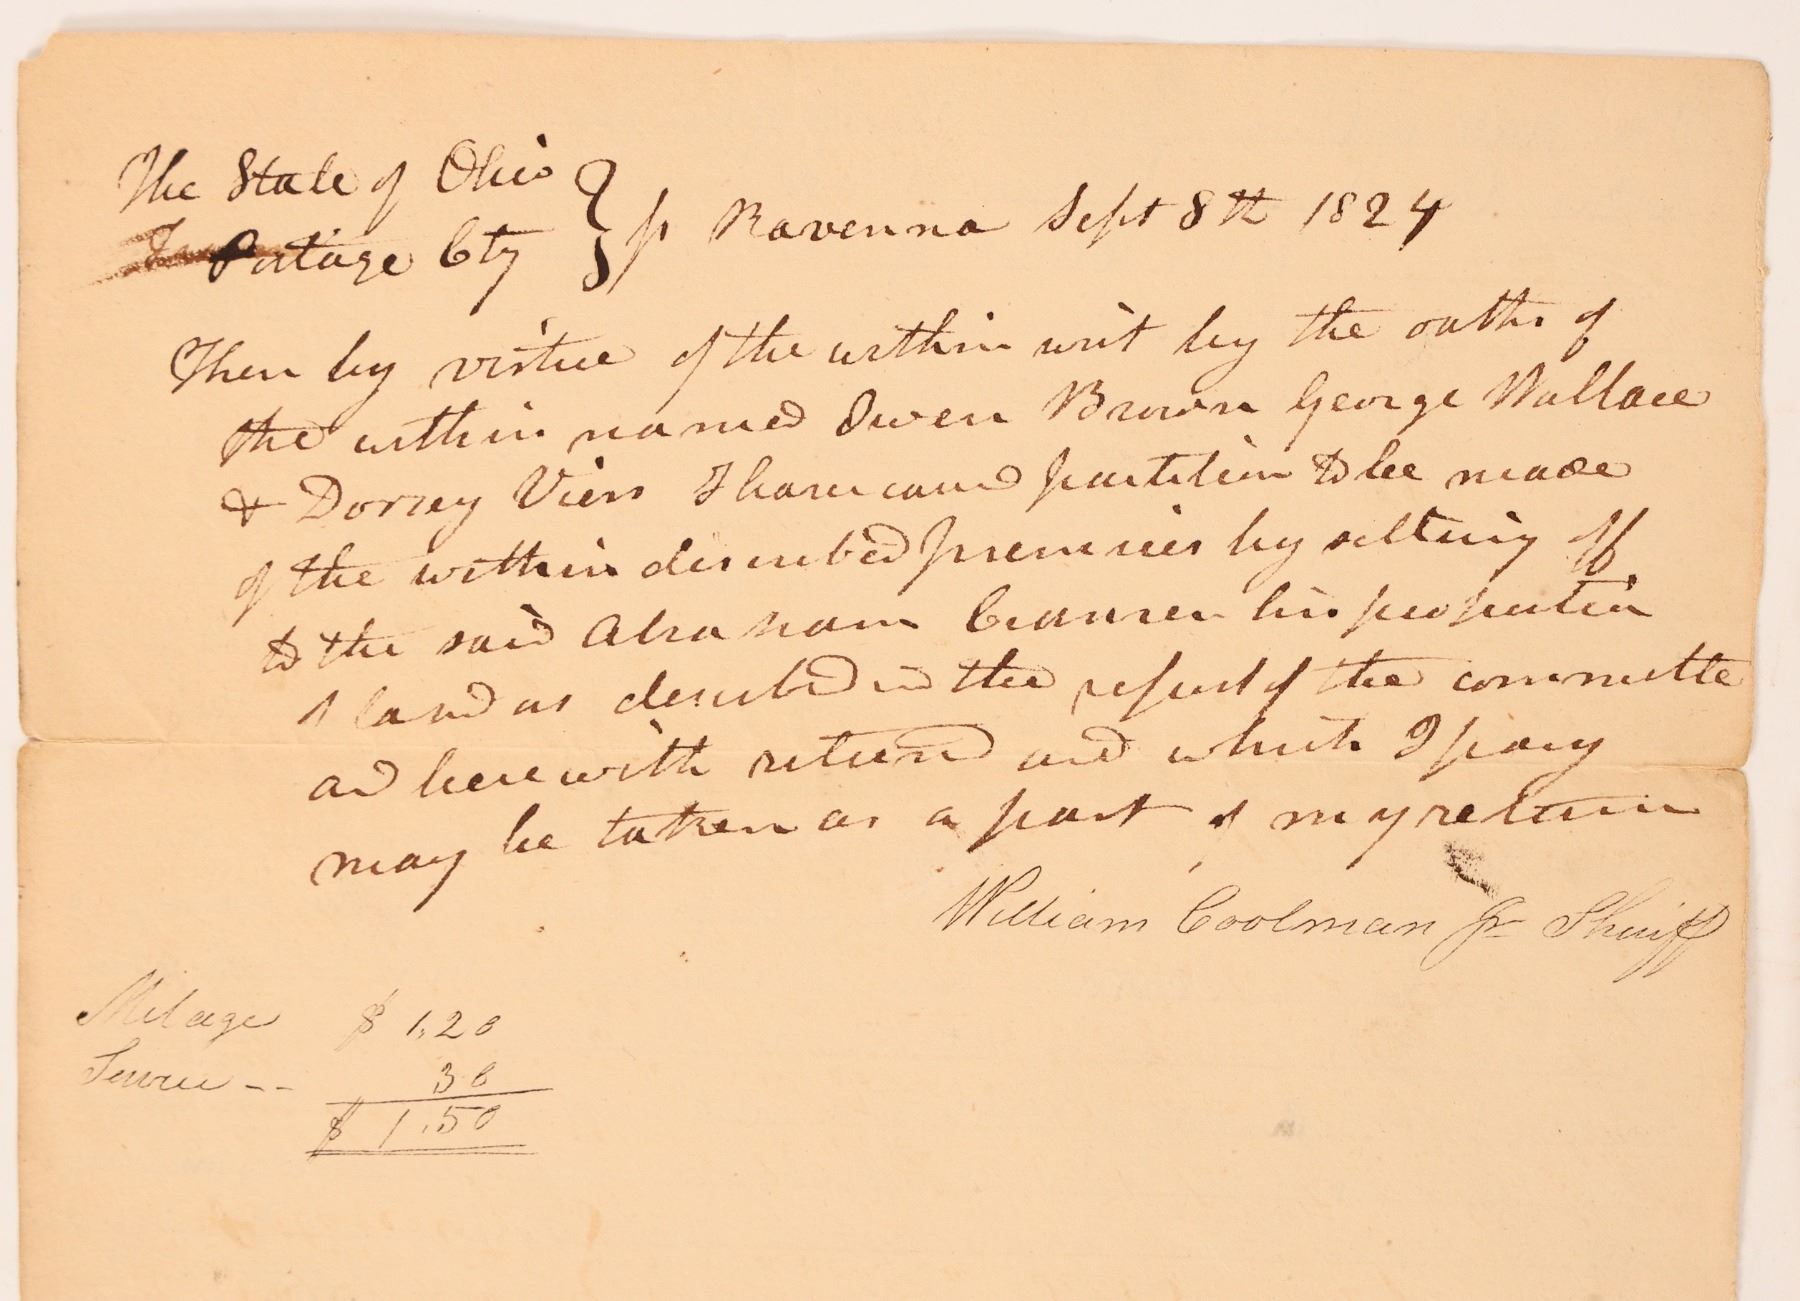 The State of Ohio
Portage Cty } Ravenna Sept 8th 1824
Then by virtue of the within writ by the oaths of
the within named Owen Brown George Wallace
& Dorsey Viers I have caused partition to be made
of the within described premises by setting off
to the said Abraham his proportion
of land as described in the report of the committe
and herewith returned and which I pray
may be taken as a part of my return
William Coolman Jr Sheriff
Milage $ 1.20
Service -- 30
$ 1.50